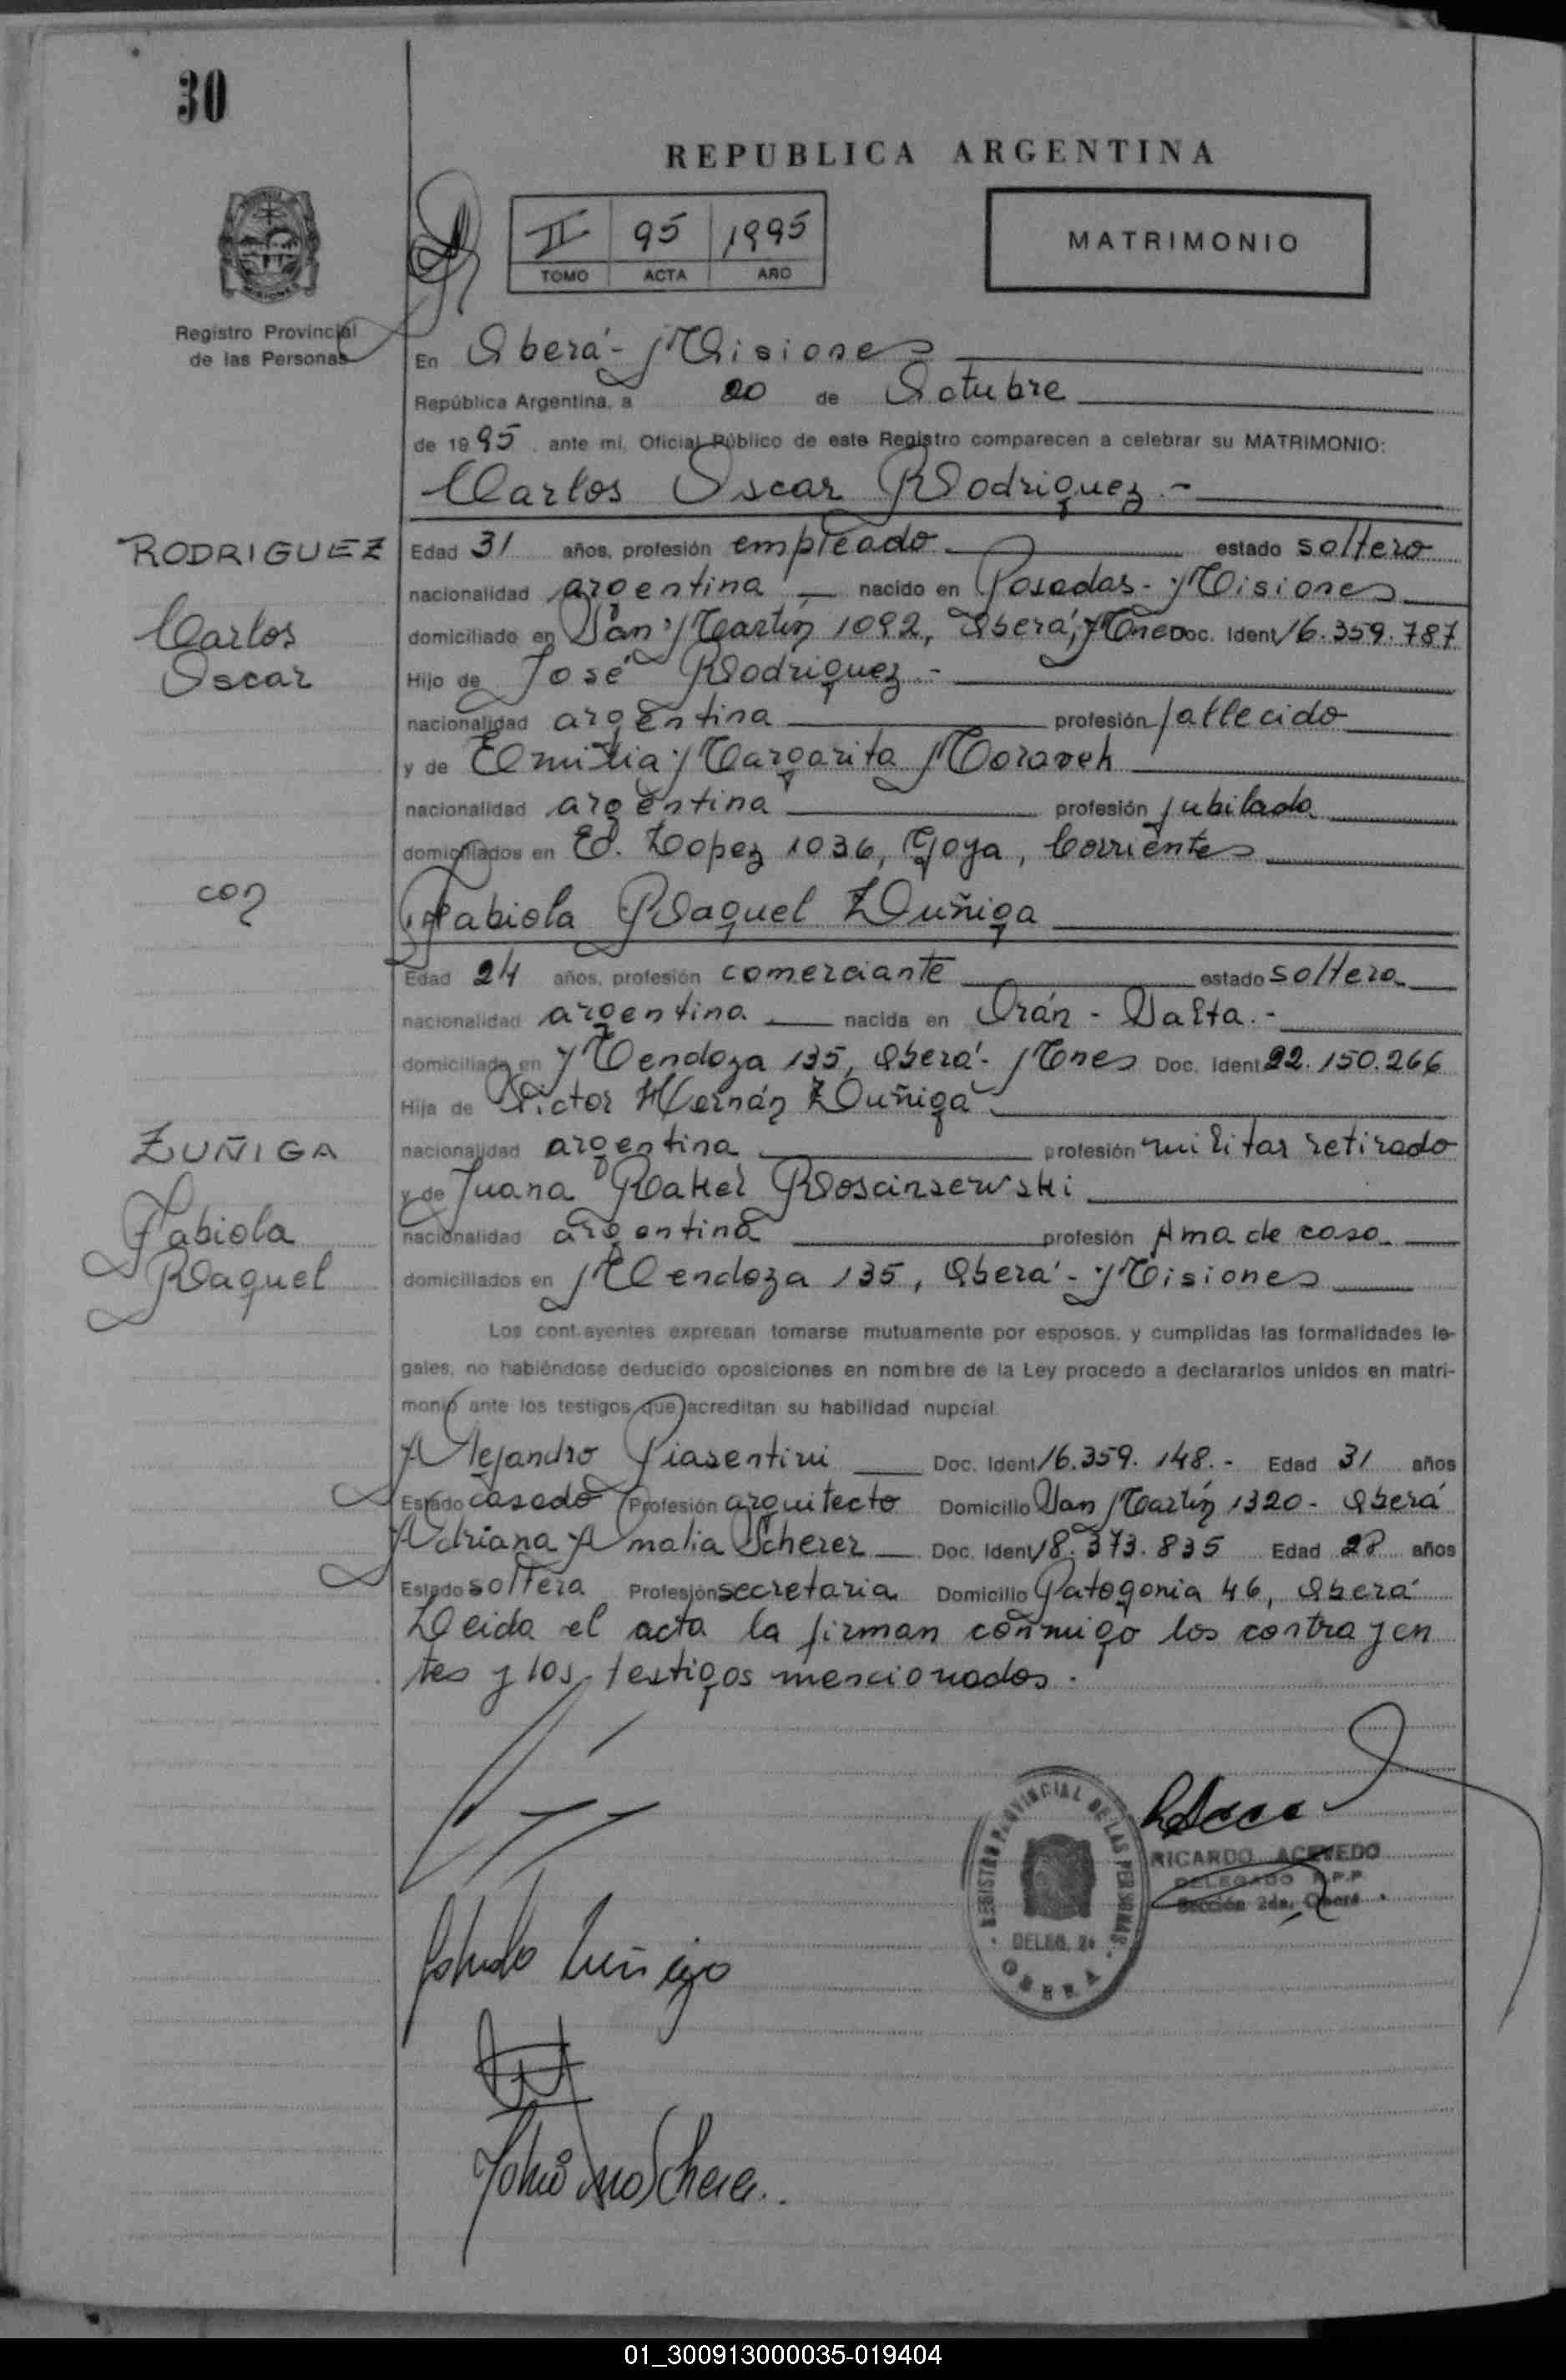 30
REPUBLICA ARGENTINA
II 95 1995
TOMO ACTA AÑO
MATRIMONIO
Registro Provincial
de las Personas
En Oberá - Misiones
República Argentina, a 20 de Octubre
de 1995, ante mi, Oficial Público de este Registro comparecen a celebrar su MATRIMONIO:
Carlos Oscar Rodriguez.-
RODRIGUEZ
Carlos
Oscar
Edad 31 años, profesión empleado estado soltero
nacionalidad argentina nacido en Posadas - Misiones
domiciliado en San Martín 1092, Oberá, Mnes Doc. Ident 16.359.787
Hijo de José Rodriguez.-
nacionalidad argentina profesión fallecido
y de Emilia Margarita Moravek
nacionalidad argentina profesión jubilada
domiciliados en Ed. Lopez 1036, Goya, Corrientes
con
Fabiola Raquel Zuñiga
Edad 24 años, profesión comerciante estado soltera
nacionalidad argentina nacida en Orán - Salta.-
domiciliada en Mendoza 135, Oberá - Mnes Doc. Ident 22.150.266
Hija de Victor Hernán Zuñiga
ZUÑIGA
Fabiola
Raquel
nacionalidad argentina profesión militar retirado
y de Juana Rakel Roscinsewski
nacionalidad argentina profesión Ama de casa
domiciliados en Mendoza 135, Oberá - Misiones
Los cont.ayentes expresan tomarse mutuamente por esposos, y cumplidas las formalidades le-
gales, no habiéndose deducido oposiciones en nombre de la Ley procedo a declararlos unidos en matri-
monio ante los testigos que acreditan su habilidad nupcial
Alejandro Piasentini Doc. Ident 16.359.148.- Edad 31 años
Estado casado Profesión arquitecto Domicilio San Martín 1320 - Oberá
Adriana Amalia Scherer Doc. Ident 18.373.835 Edad 28 años
Estado soltera Profesión secretaria Domicilio Patagonia 46, Oberá
Leida el acta la firman conmigo los contrayen
tes y los testigos mencionados.
REGISTRO PROVINCIAL DE LAS PERSONAS
DELEG. 2ª
OBERA
RICARDO ACEVEDO
DELEGADO R.P.P
Sección 2da. Oberá
Zuñiga
01_300913000035-019404